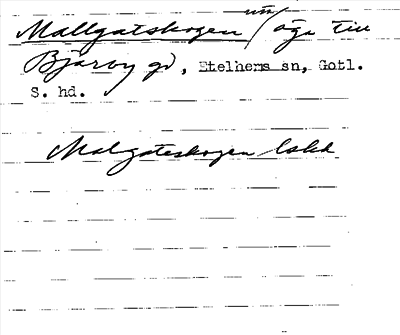 Mallgatskogen / äga till
Bjärby gd, Etelhems sn, Gotl.
S. hd.
Malgateskogen lokk